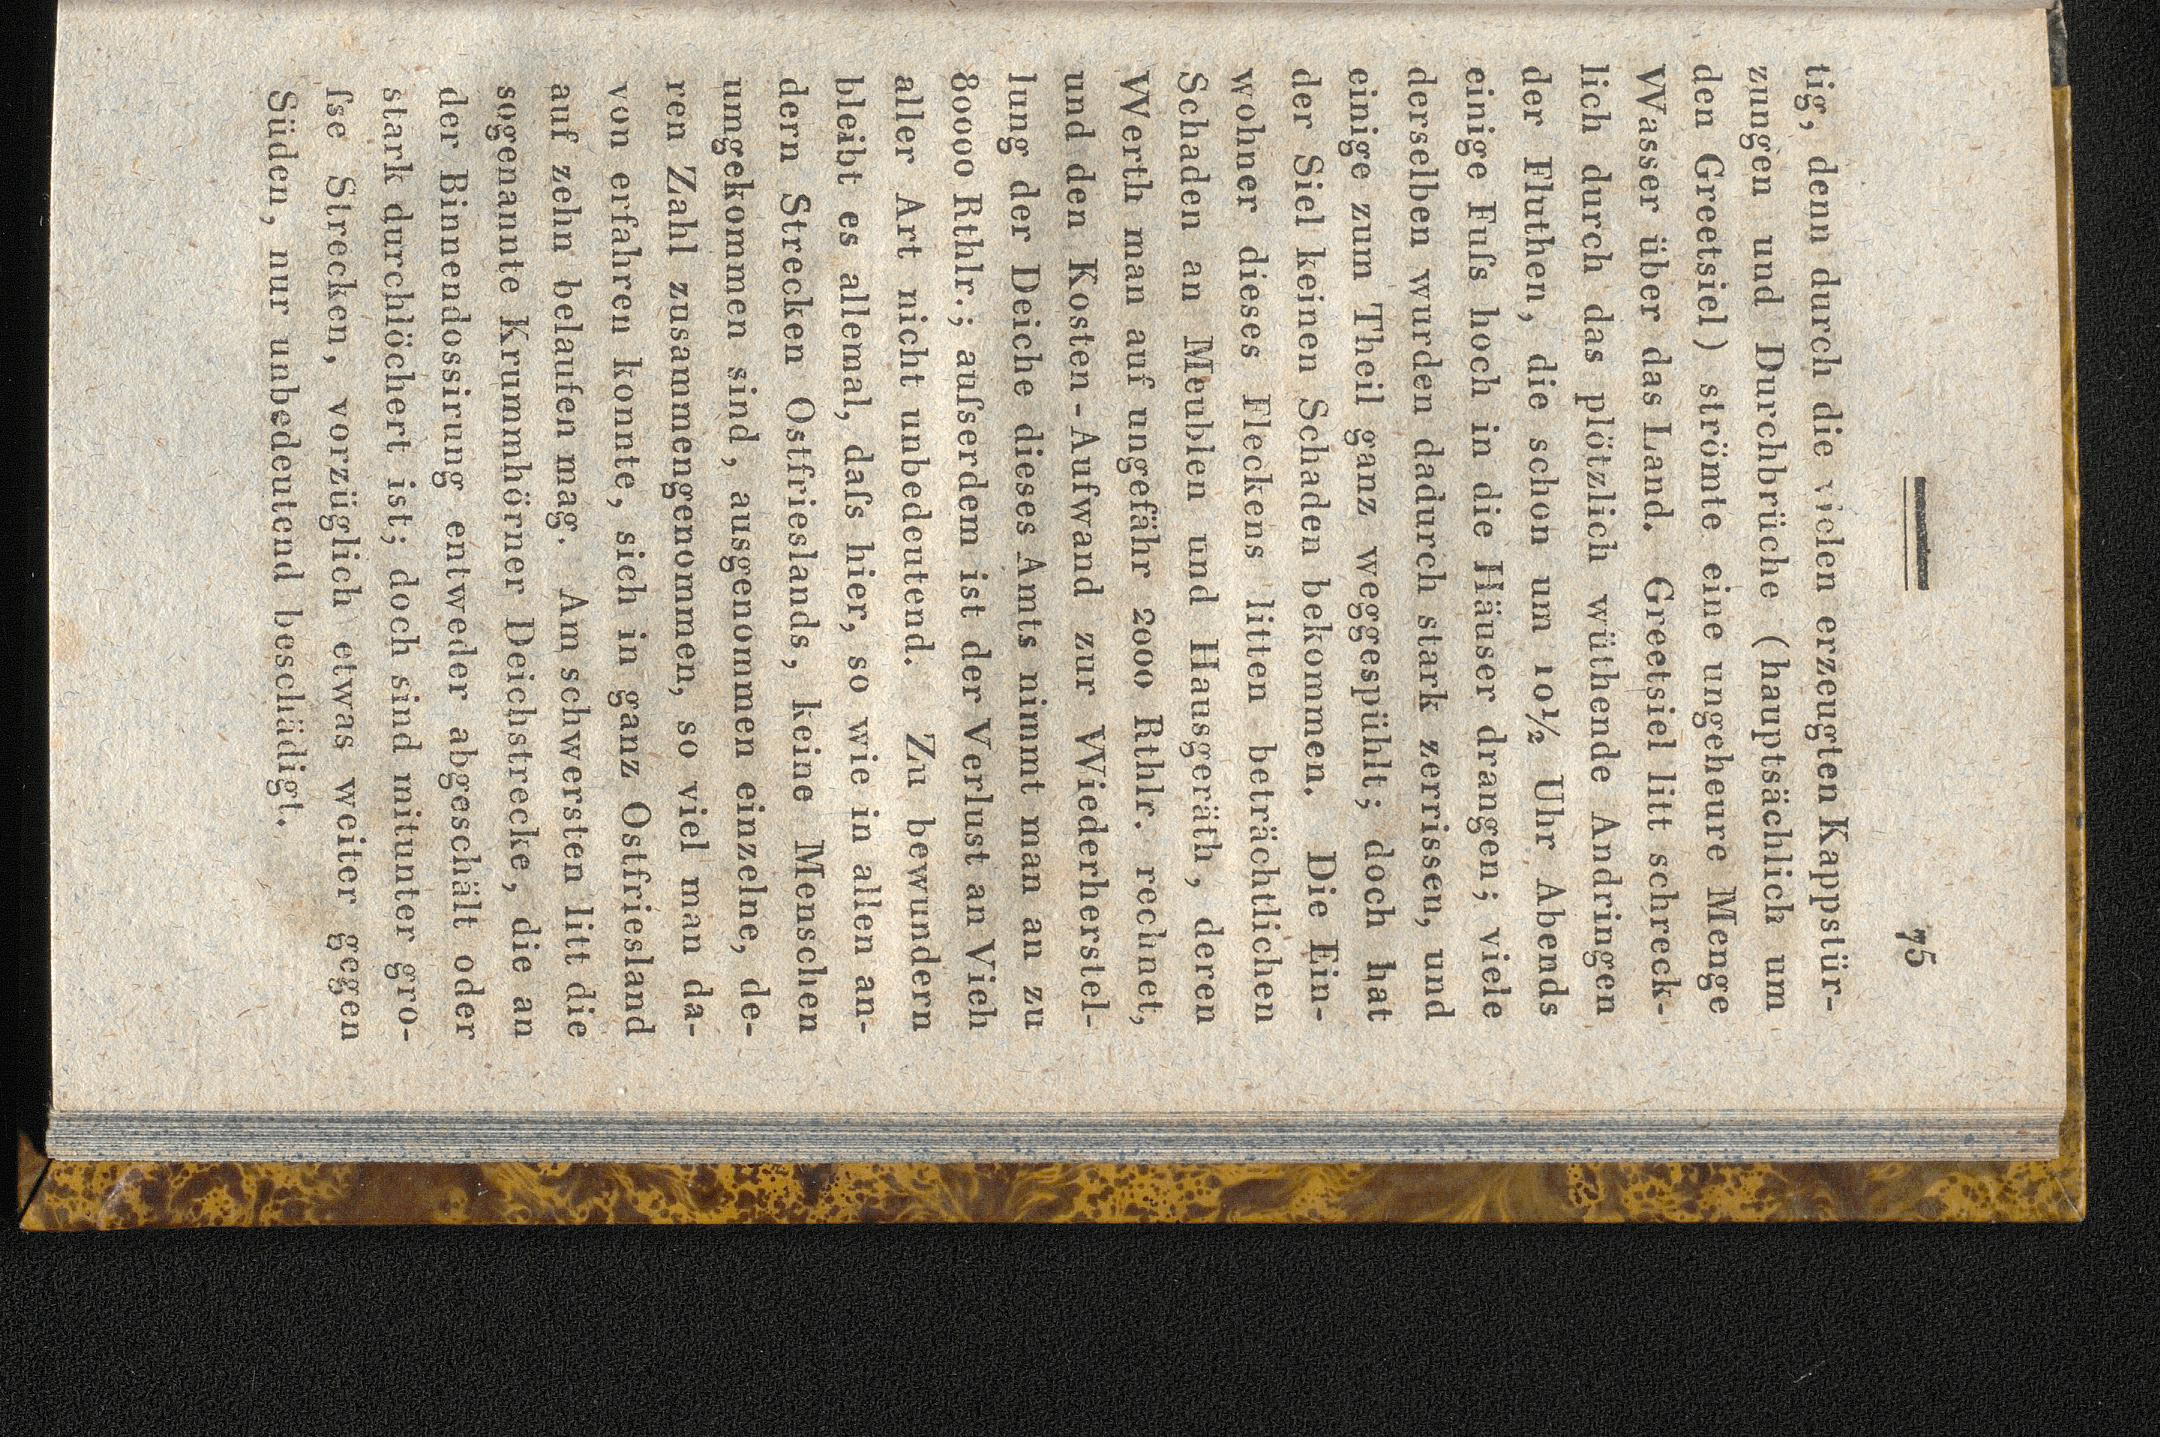 75
tig, denn durch die vielen erzeugten Kappstür-
zungen und Durchbrüche (hauptsächlich um
den Greetsiel) strömte eine ungeheure Menge
Wasser über das Land. Greetsiel litt schreck-
lich durch das plötzlich wüthende Andringen
der Fluthen, die schon um 10½ Uhr Abends
einige Fuſs hoch in die Häuser drangen; viele
derselben wurden dadurch stark zerrissen, und
einige zum Theil ganz weggespühlt; doch hat
der Siel keinen Schaden bekommen. Die Ein-
wohner dieses Fleckens litten beträchtlichen
Schaden an Meublen und Hausgeräth, deren
Werth man auf ungefähr 2000 Rthlr. rechnet,
und den Kosten-Aufwand zur Wiederherstel-
lung der Deiche dieses Amts nimmt man an zu
80000 Rthlr.; auſserdem ist der Verlust an Vieh
aller Art nicht unbedeutend. Zu bewundern
bleibt es allemal, daſs hier, so wie in allen an-
dern Strecken Ostfrieslands, keine Menschen
umgekommen sind, ausgenommen einzelne, de-
ren Zahl zusammengenommen, so viel man da-
von erfahren konnte, sich in ganz Ostfriesland
auf zehn belaufen mag. Am schwersten litt die
sogenannte Krummhörner Deichstrecke, die an
der Binnendossirung entweder abgeschält oder
stark durchlöchert ist; doch sind mitunter gro-
ſse Strecken, vorzüglich etwas weiter gegen
Süden, nur unbedeutend beschädigt.